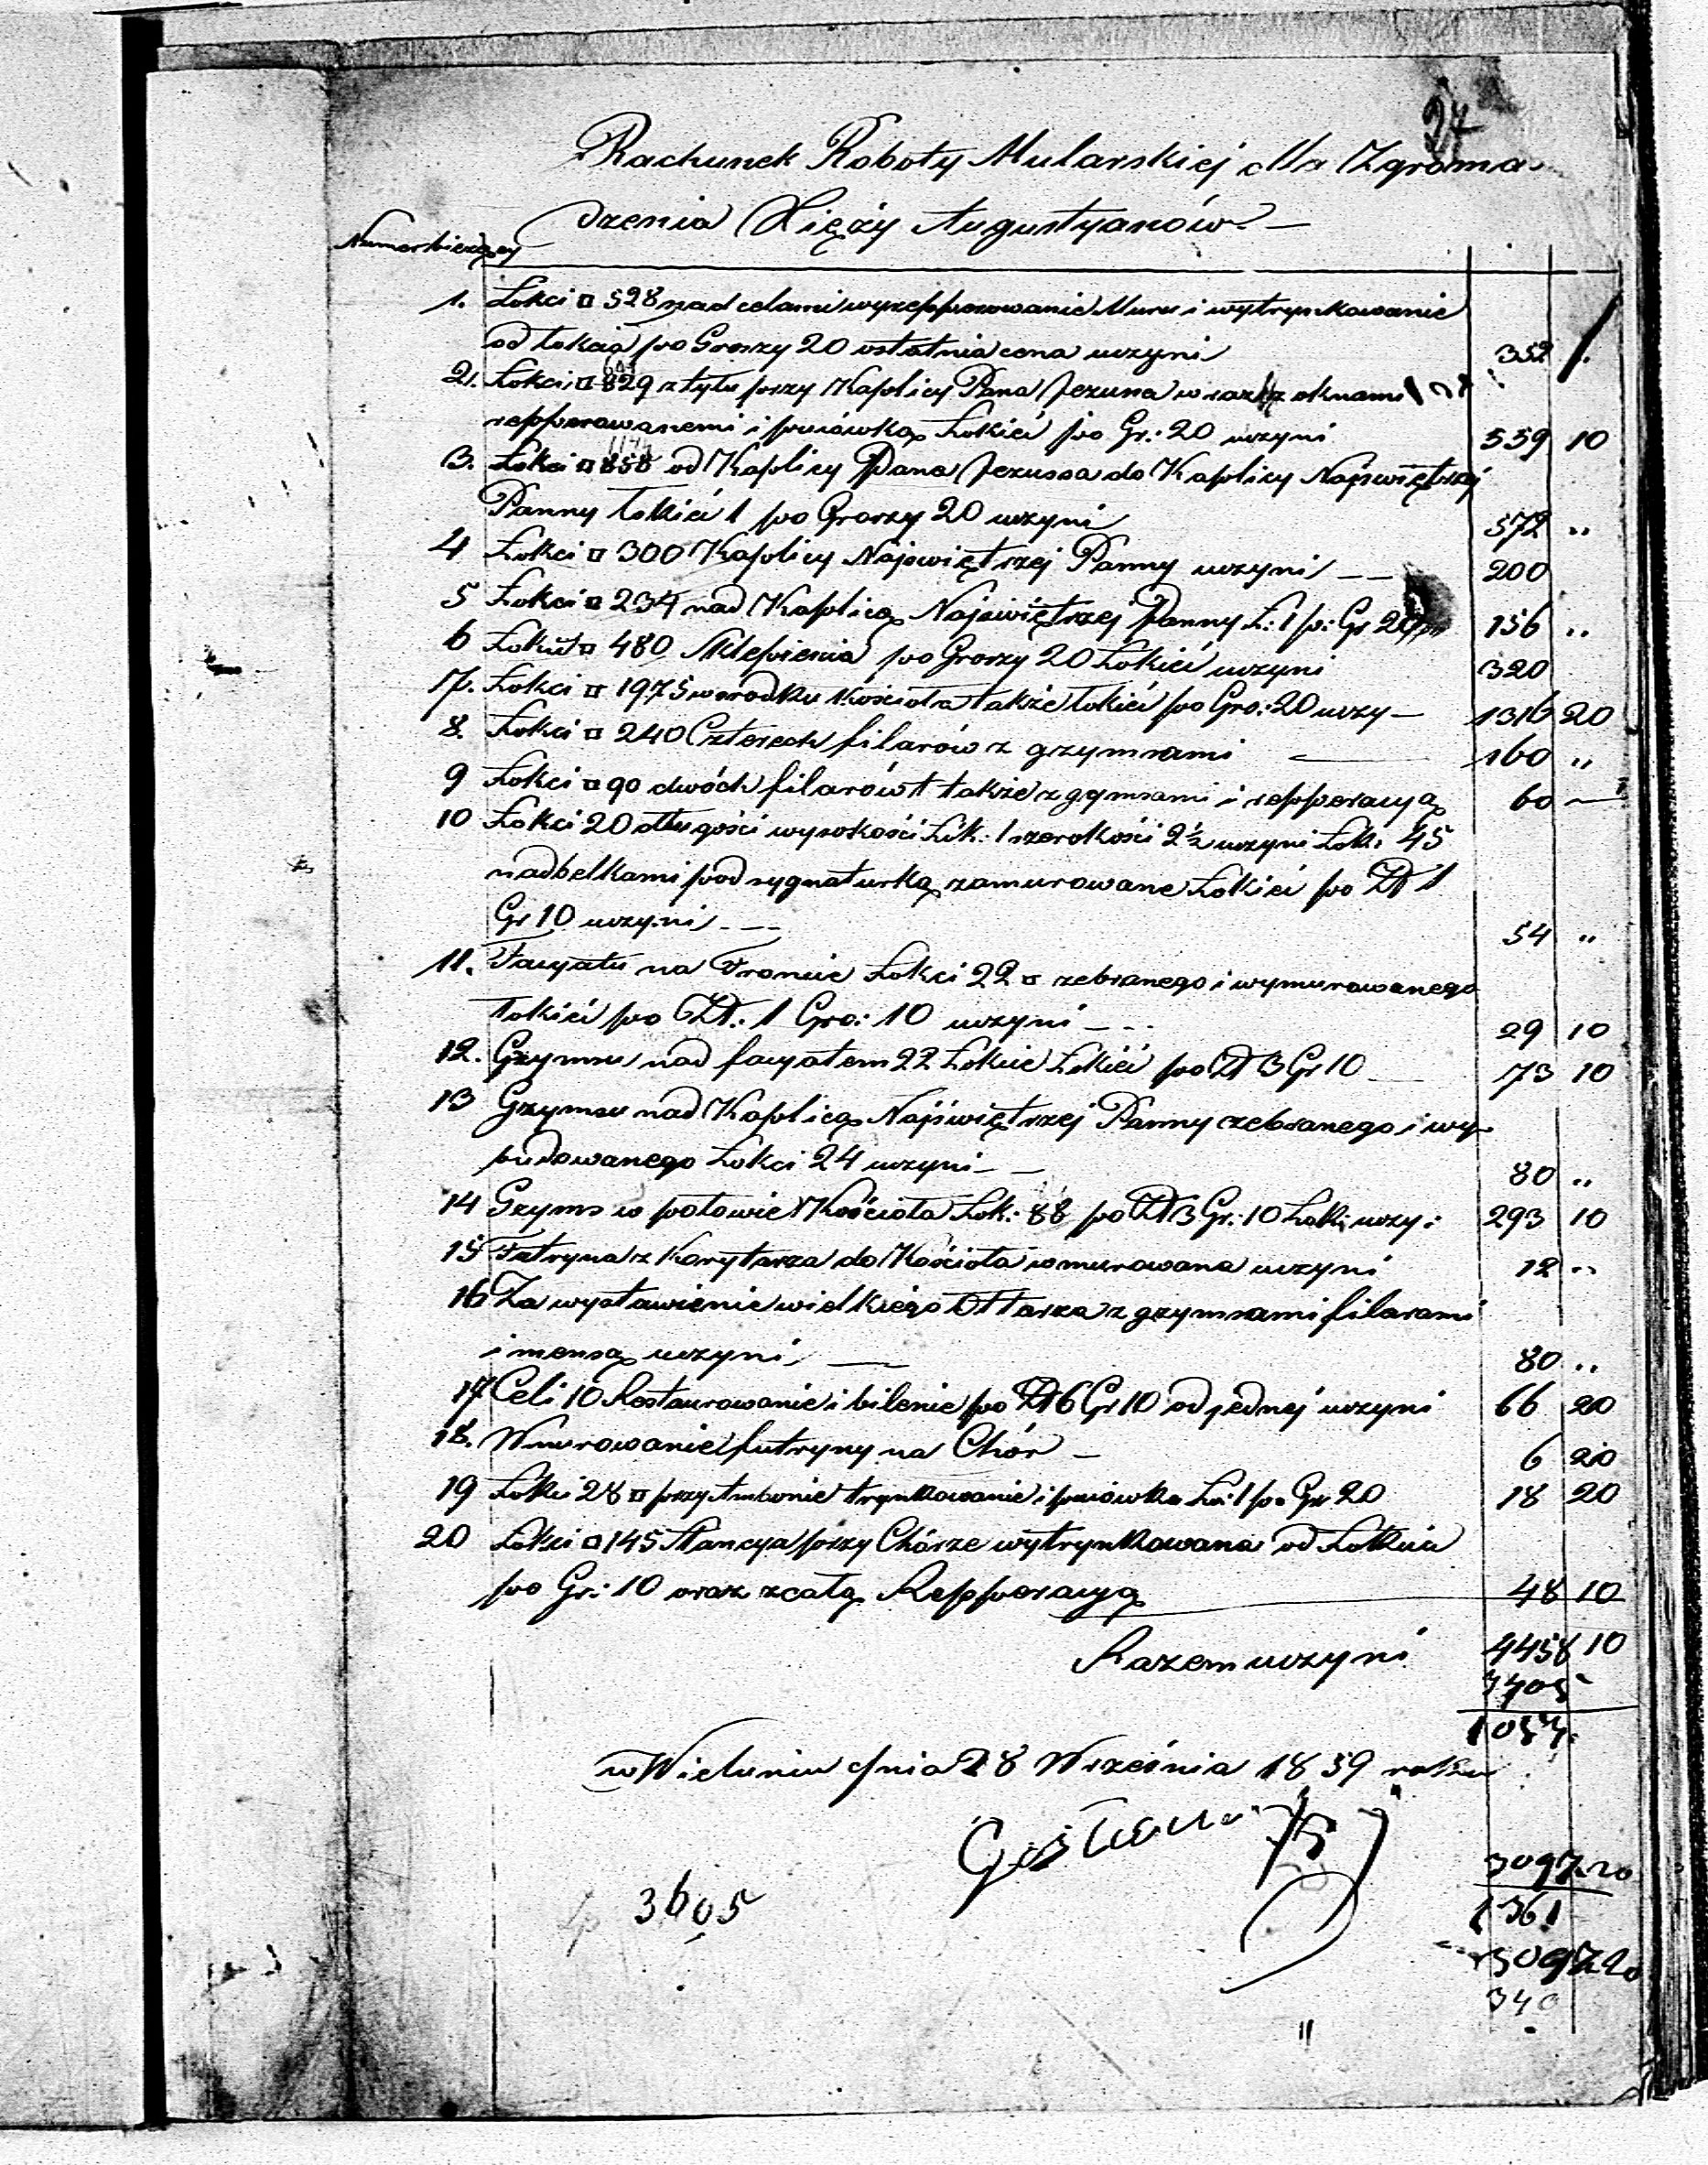 27
Rachunek Roboty Mularskiej dla Zgroma
dzenia Xięży Augustyanów
Numer bieżący
1. Łokci □ 528 nad celami wyrepperowanie Muru i wytrynkowanie
od Łokcia po Groszy 20 ostatnia cena uczyni 352
2. Łokci □ 829 z tyłu przy Kaplicy Pana Jezusa wraz z oknami
repperowanemi i pruiówką Łokieć po Gr: 20 uczyni 559 10
3. Łokci □ 858 od Kaplicy Pana Jezussa do Kaplicy Najświętszej
Panny Łokieć 1 po Groszy 20 uczyni 572 "
4 Łokci □ 300 Kaplicy Najświętszej Panny uczyni 200
5 Łokci □ 234 nad Kaplicą Najświętrzej Panny Ł: 1 p: Gr 20 156 "
6 Łokci □ 480 Sklepienia po Groszy 20 Łokieć uczyni 320
7. Łokci □ 1975 w srodku Kościoła także łokieć po Gro: 20 uczy 1316 20
8. Łokci □ 240 Czterech filarów z gzymsami 160 "
9 Łokci □ 90 dwóch filarów także z gzymsami i repperacyą 60 —
10 Łokci 20 długości wysokości Łok: 1 szerokości 2½ uczyni Łok: 45
nad belkami pod sygnaturką zamurowane Łokieć po Zł 1
Gr 10 uczyni 54 "
11. Facyatu na Froncie Łokci 22 □ zebranego i wymurowanego
Łokieć po Zł: 1 Gro: 10 uczyni 29 10
12. Gzymsu nad facyatem 22 Łokcie Łokieć po Zł 3 Gr 10 73 10
13 Gzymsu nad Kaplicą Najświętszej Panny zebranego i wy
budowanego Łokci 24 uczyni 80 "
14 Gzyms w połowie Kościoła Łok: 88 po Zł 3 Gr: 10 Łok: uczy: 293 10
15 Futryna z Korytarza do Kościoła wmurowana uczyni 12 "
16 Za wystawienie wielkiego Ołtarza z gzymsami filarami
i mensą uczyni 80 "
17 Celi 10 Restaurowanie i bilenie po Zł 6 Gr 10 od jednej uczyni 66 20
18. Wmurowanie futryny na Chór 6 20
19 Łokci 28 □ przy Ambonie trynkowanie i pruiówka Ło: 1 po Gr 20 18 20
20 Łokci □ 145 Stancya przy Chórze wytrynkowana od Łokcia
po Gr: 10 oraz z całą Repperacyą 48 10
Razem uczyni 4458 10
w Wieluniu dnia 28 Września 1859 roku
3097 20
1361
3605
3097 20
340